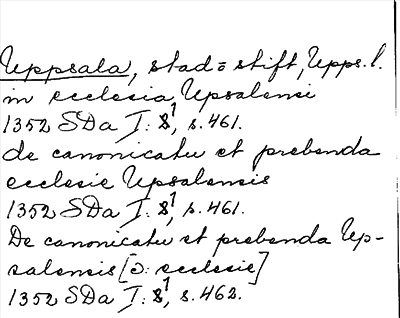 Uppsala, stad o stift, Upps. l.
in ecclesia Upsalensi
1352 SDa I: 8¹, s. 461.
de canonicatu et prebenda
ecclesie Upsalensis
1352 SDa I: 8¹, s. 461.
De canonicatu et prebenda Up-
salensis [ɔ: ecclesie]
1352 SDa I: 8¹, s. 462.